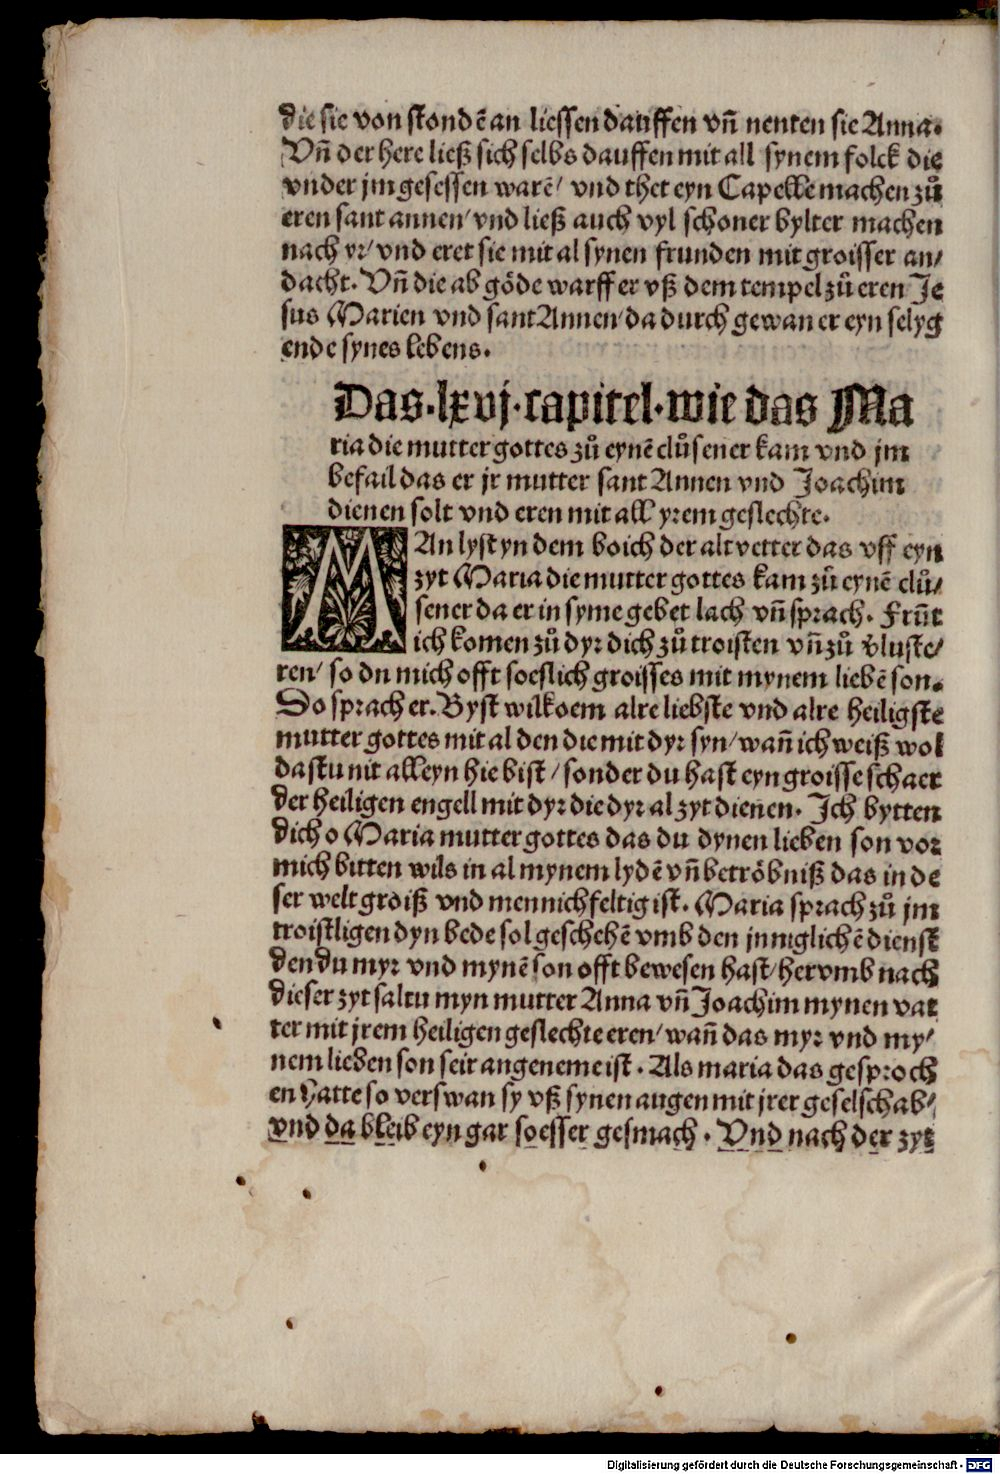 die sie von stondē an liessen dauffen vn̄ nenten sie Anna.
Vn̄ der here ließ sich selbs dauffen mit all synem folck die
vnder jm gesessen warē/ vnd thet eyn Capelle machen zů
eren sant annen/ vnd ließ auch vyl schoner bylter machen
nach yr/ vnd eret sie mit al synen frunden mit groisser an/
dacht. Vn̄ die ab göde warff er vß dem tempel zů eren Je
sus Marien vnd sant Annen/ da durch gewan er eyn selyg
ende synes lebens.
Das .lxvj. capitel. wie das Ma
ria die mutter gottes zů eynē clůsener kam vnd jm
befail das er jr mutter sant Annen vnd Joachim
dienen solt vnd eren mit all yrem geslechte.
MAn lyst yn dem boich der altvetter das vff eyn
zyt Maria die mutter gottes kam zů eynē clů/
sener da er in syme gebet lach vn̄ sprach. Frūt
ich komen zů dyr dich zů troisten vn̄ zů v̄luste/
ren/ so du mich offt soeslich groisses mit mynem liebē son.
Do sprach er. Byst wilkoem alre liebste vnd alre heiligste
mutter gottes mit al den die mit dyr syn/ wan̄ ich weiß wol
dastu nit alleyn hie bist/ sonder du hast eyn groisse schaer
der heiligen engell mit dyr die dyr al zyt dienen. Ich bytten
dich o Maria mutter gottes das du dynen lieben son vor
mich bitten wils in al mynem lydē vn̄ betröbniß das in de
ser welt groiß vnd mennichfeltig ist. Maria sprach zů jm
troistligen dyn bede sol geschehē vmb den jnniglichē dienst
den du myr vnd mynē son offt bewesen hast/ hervmb nach
dieser zyt saltu myn mutter Anna vn̄ Joachim mynen vat
ter mit jrem heiligen geslechte eren/ wan̄ das myr vnd my/
nem lieben son seir angeneme ist. Als maria das gesproch
en hatte so verswan sy vß synen augen mit jrer geselschab/
vnd da bleib eyn gar soesser gesmach. Vnd nach der zyt
Digitalisierung gefördert durch die Deutsche Forschungsgemeinschaft - DFG